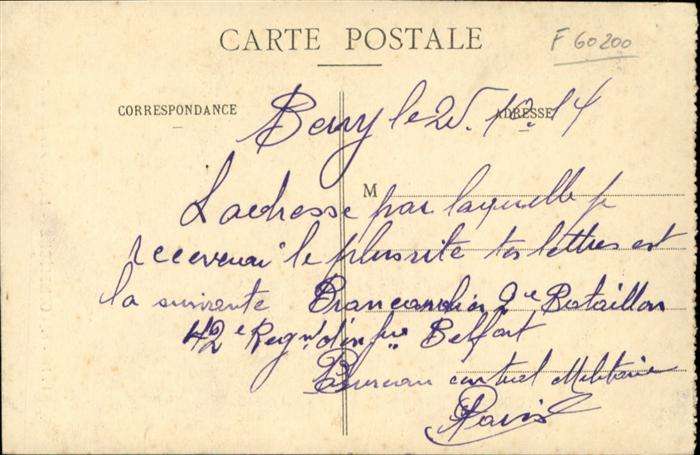 CARTE POSTALE
F 60200
CORRESPONDANCE
ADRESSE
Berry le 25. 10. 14
M
L'adresse par laquelle je
recevrai le plus vite tes lettres est
la suivante Brancardier 2e Bataillon
42e Regnt d'infrie Belfort
Bureau central Militaire
Paris